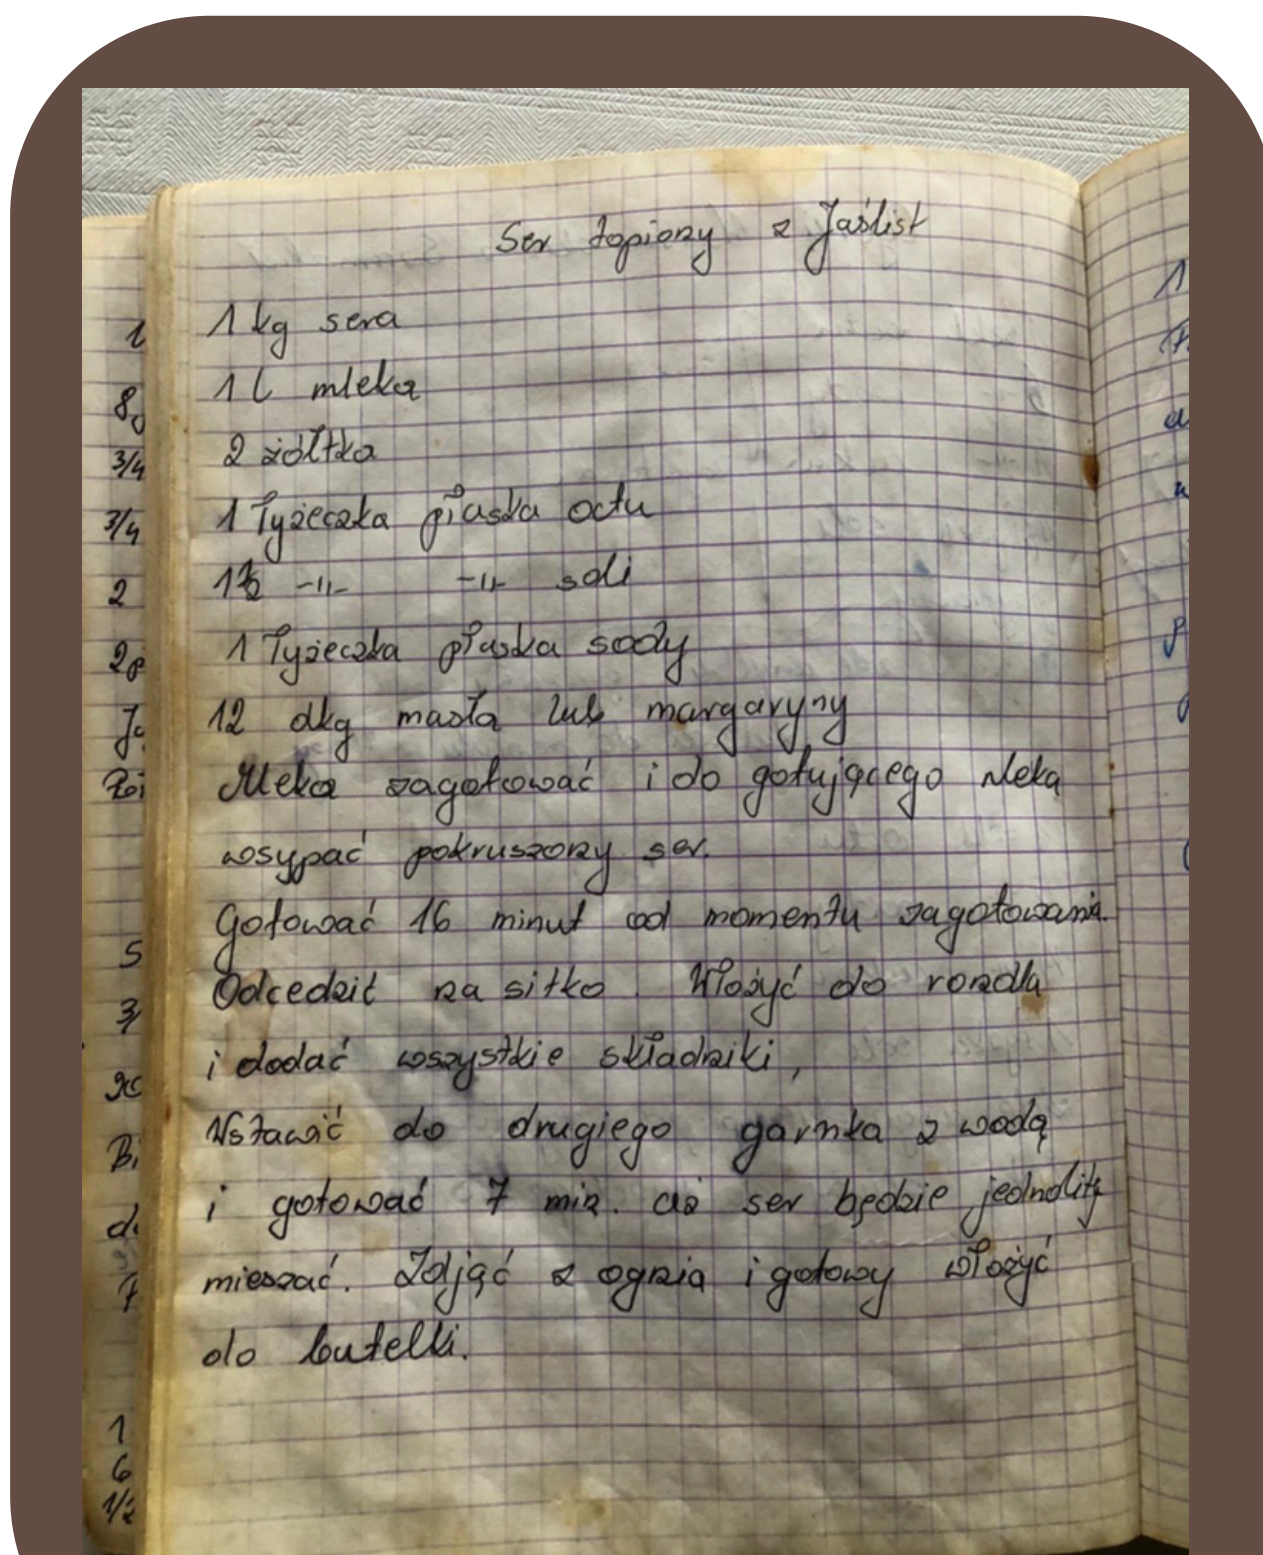 Ser topiony z Jaślist
1 kg sera
1 l mleka
2 żółtka
1 łyżeczka płaska octu
1½ -||- -||- soli
1 łyżeczka płaska sody
12 dkg masła lub margaryny
Mleka zagotować i do gotującego mleka
wsypać pokruszony ser.
Gotować 16 minut od momentu zagotowania.
Odcedzić na sitko. Włożyć do rondla
i dodać wszystkie składniki,
Wstawić do drugiego garnka z wodą
i gotować 7 min. aż ser będzie jednolity
mieszać. Zdjąć z ognia i gotowy włożyć
do butelki.
1
8
3/4
3/4
2
2
5
3
1
6
1/2
1